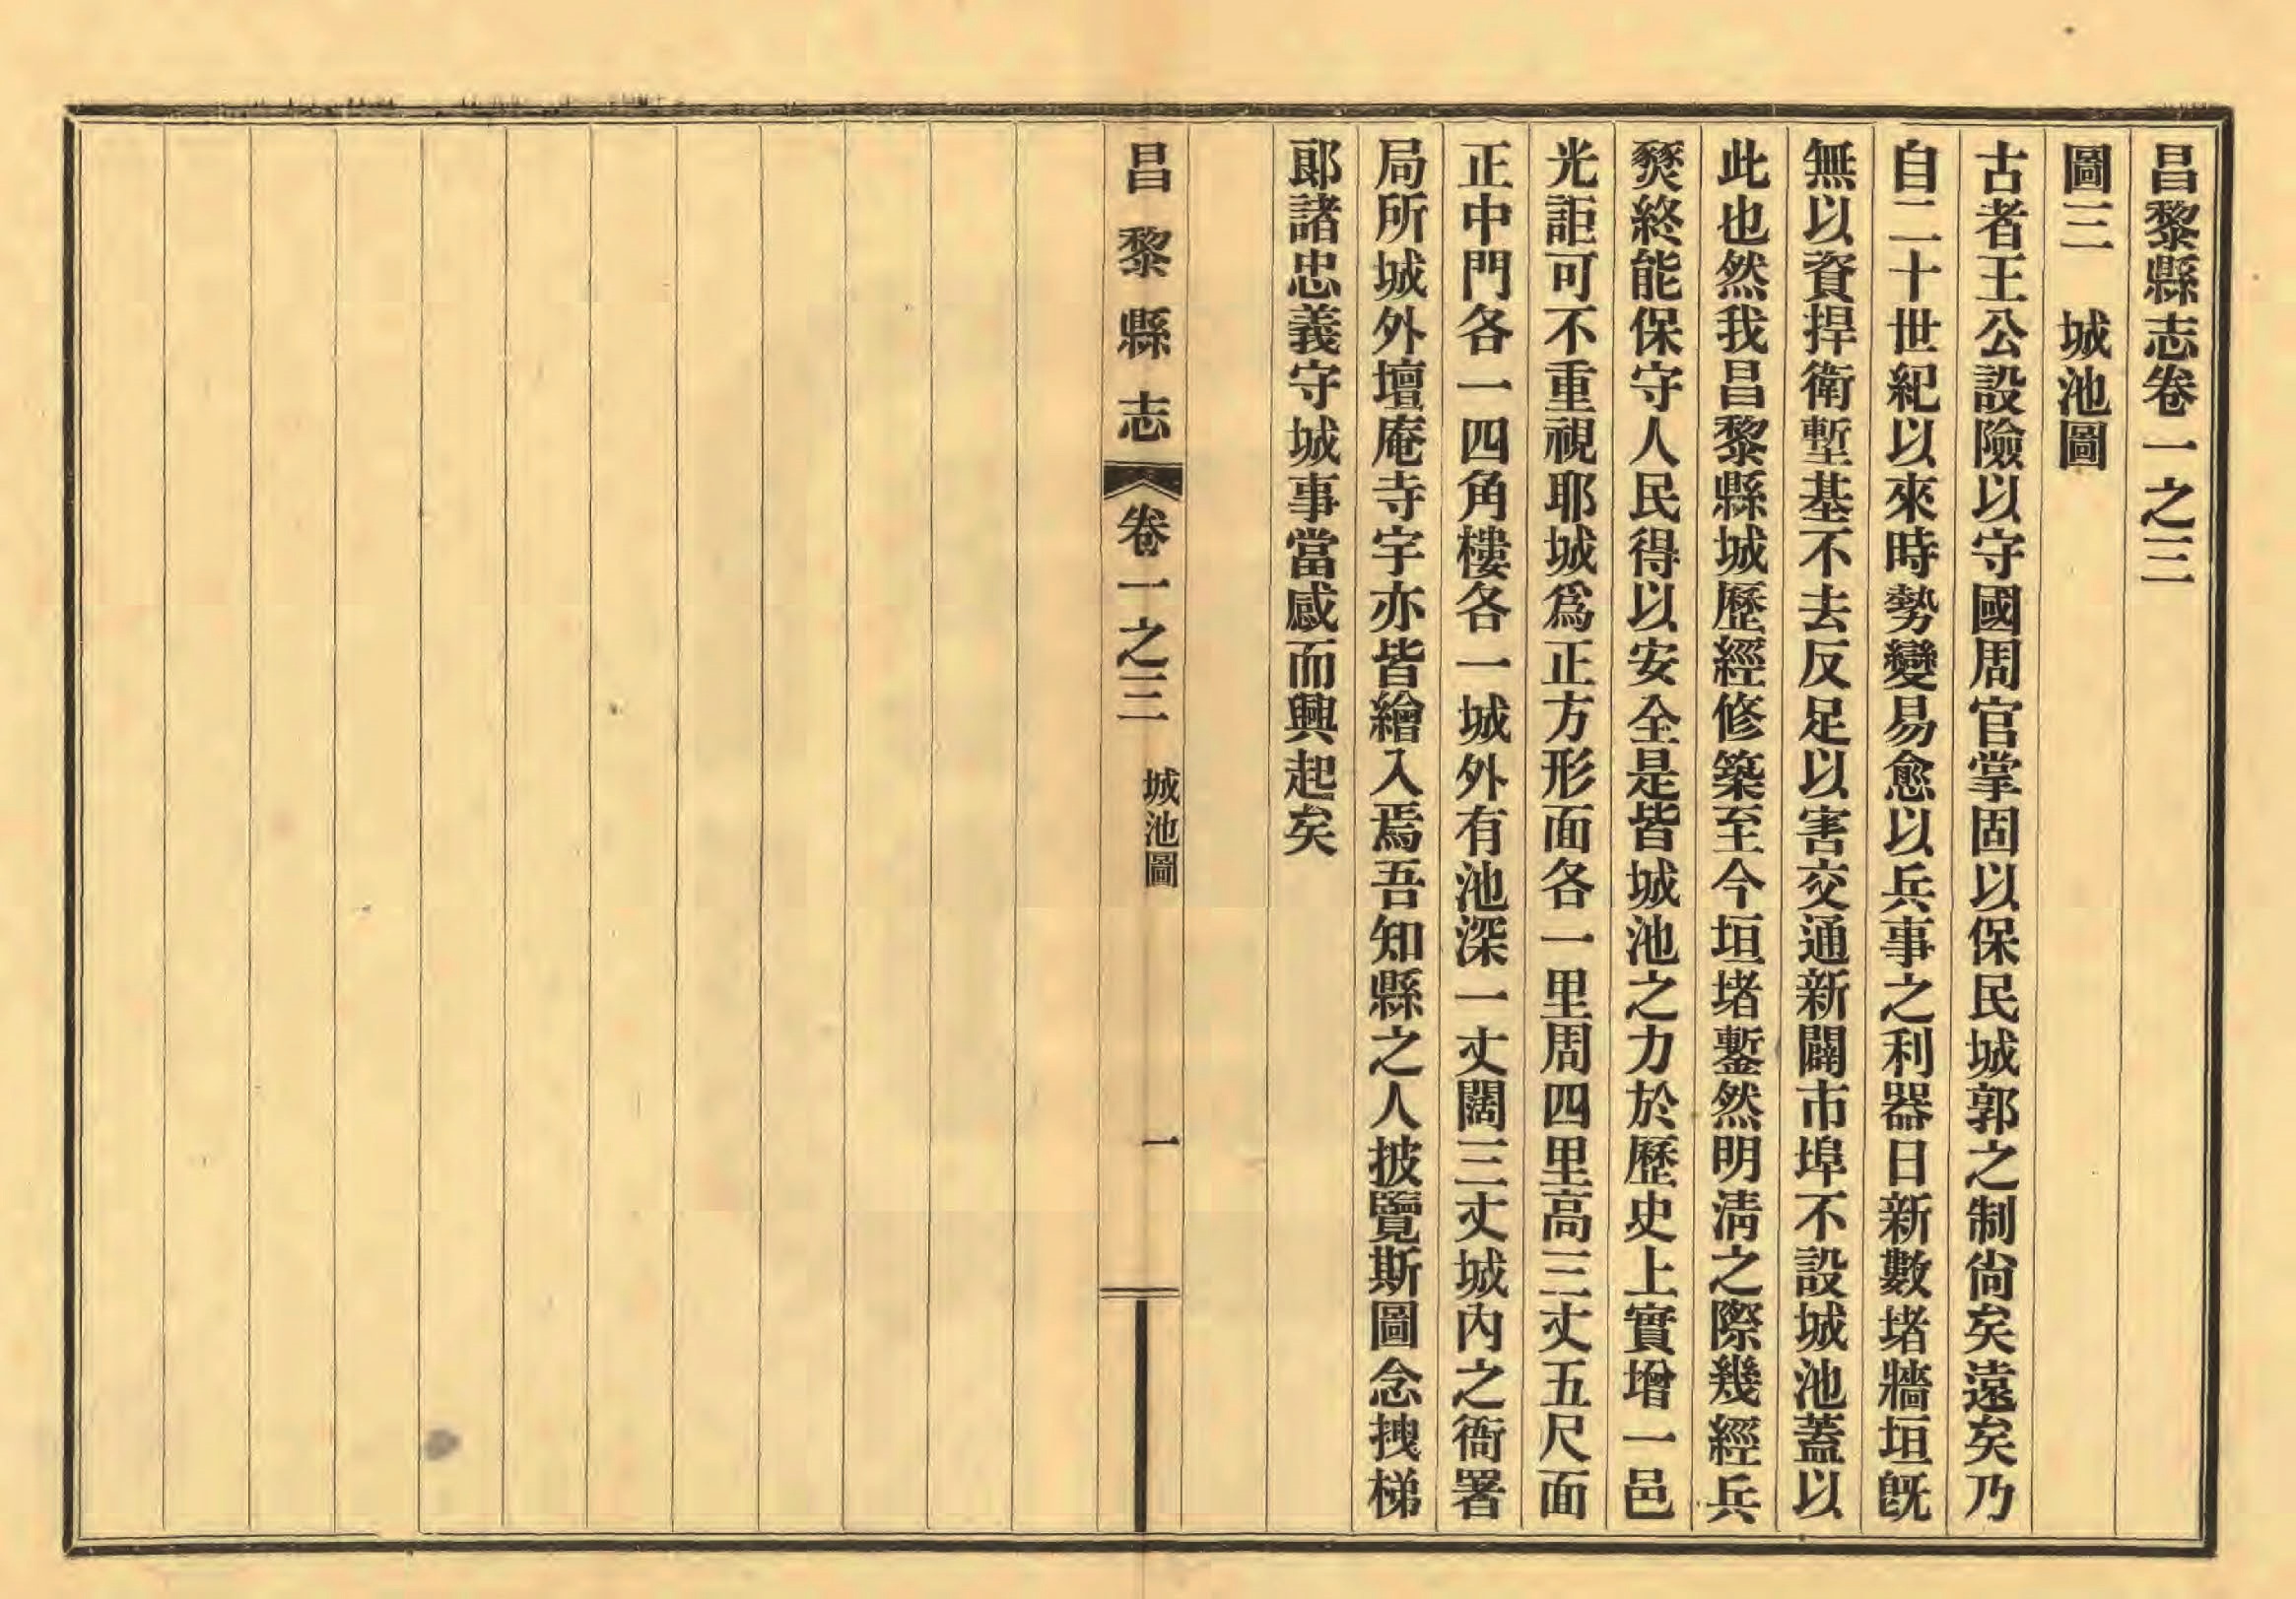 昌黎縣志卷一之三
圖三　城池圖
古者王公設險以守國周官掌固以保民城郭之制尙矣遠矣乃
自二十世紀以來時勢變易愈以兵事之利器日新數堵牆垣旣
無以資捍衛塹基不去反足以害交通新闢市埠不設城池蓋以
此也然我昌黎縣城歷經修築至今垣堵塹然明淸之際幾經兵
燹終能保守人民得以安全是皆城池之力於歷史上實增一邑
光詎可不重視耶城爲正方形面各一里周四里高三丈五尺面
正中門各一四角樓各一城外有池深一丈闊三丈城內之衙署
局所城外壇庵寺宇亦皆繪入焉吾知縣之人披覽斯圖念拽梯
郞諸忠義守城事當感而興起矣
昌黎縣志　卷一之三　城池圖　一